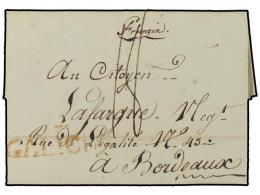 Francia
Au Citoyen
Lafargue Negt
Rue de l'Egalité No 45
à Bordeaux